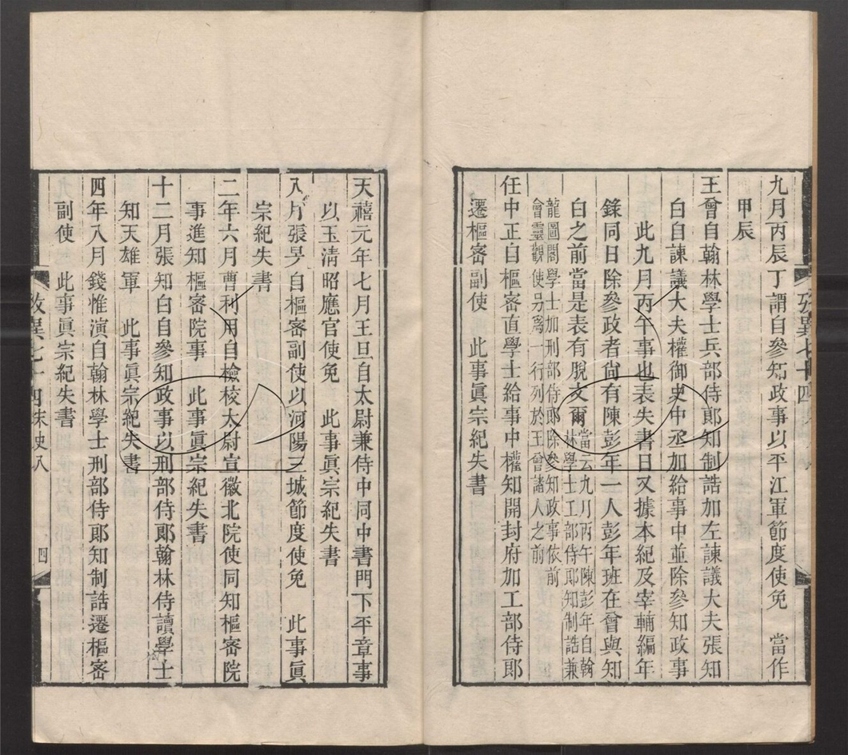 九月丙辰丁謂自參知政事以平江軍節度使免　當作
甲辰
王曾自翰林學士兵部侍郎知制誥加左諫議大夫張知
白自諫議大夫權御史中丞加給事中並除參知政事
此九月丙午事也表失書日又據本紀及宰輔編年
錄同日除參政者尚有陳彭年一人彭年班在曾與知
白之前當是表有脫文爾當云九月丙午陳彭年自翰
林學士工部侍郎知制誥兼
龍圖閣學士加刑部侍郎除參知政事依前
會靈觀使另爲一行列於王曾諸人之前
任中正自樞密直學士給事中權知開封府加工部侍郎
遷樞密副使　此事眞宗紀失書
攷異七十四
天禧元年七月王旦自太尉兼侍中同中書門下平章事
以玉清昭應宮使免　此事眞宗紀失書
八月張旻自樞密副使以河陽三城節度使免　此事眞
宗紀失書
二年六月曹利用自檢校太尉宣徽北院使同知樞密院
事進知樞密院事　此事眞宗紀失書
十二月張知白自參知政事以刑部侍郎翰林侍讀學士
知天雄軍　此事眞宗紀失書
四年八月錢惟演自翰林學士刑部侍郎知制誥遷樞密
副使　此事眞宗紀失書
攷異七十四　宋史八　四